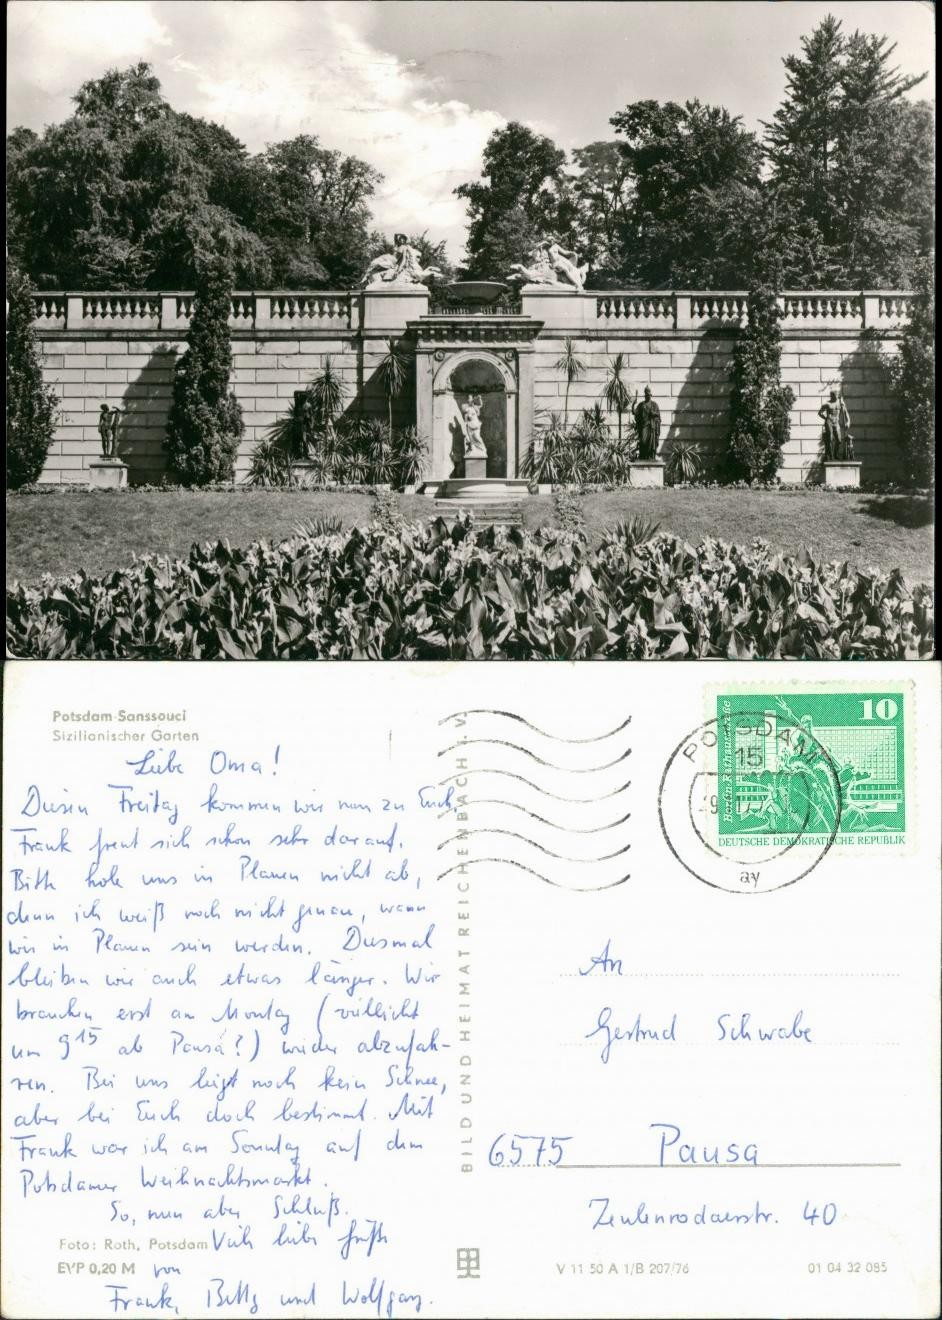 Potsdam-Sanssouci
Sizilianischer Garten
Liebe Oma!
Diesen Freitag kommen wir nun zu Euch.
Frank freut sich schon sehr darauf.
Bitte hole uns in Plauen nicht ab,
denn ich weiß noch nicht genau, wann
wir in Plauen sein werden. Diesmal
bleiben wir auch etwas länger. Wir
brauchen erst am Montag (vielleicht
um 9 15 ab Pausa?) wieder abzufah-
ren. Bei uns liegt noch kein Schnee,
aber bei Euch doch bestimmt. Mit
Frank war ich am Sonntag auf dem
Potsdamer Weihnachtsmarkt.
So, nun aber Schluß.
Viele liebe Grüße
von
Frank, und Wolfgang.
Foto: Roth, Potsdam
EVP 0,20 M
BILD UND HEIMAT REICHENBACH I. V.
POTSDAM
15
ay
10
Berlin-Rathausstraße
DEUTSCHE DEMOKRATISCHE REPUBLIK
An
Gertrud Schwabe
6575 Pausa
Zeulenrodaerstr. 40
V 11 50 A 1/B 207/76
01 04 32 085